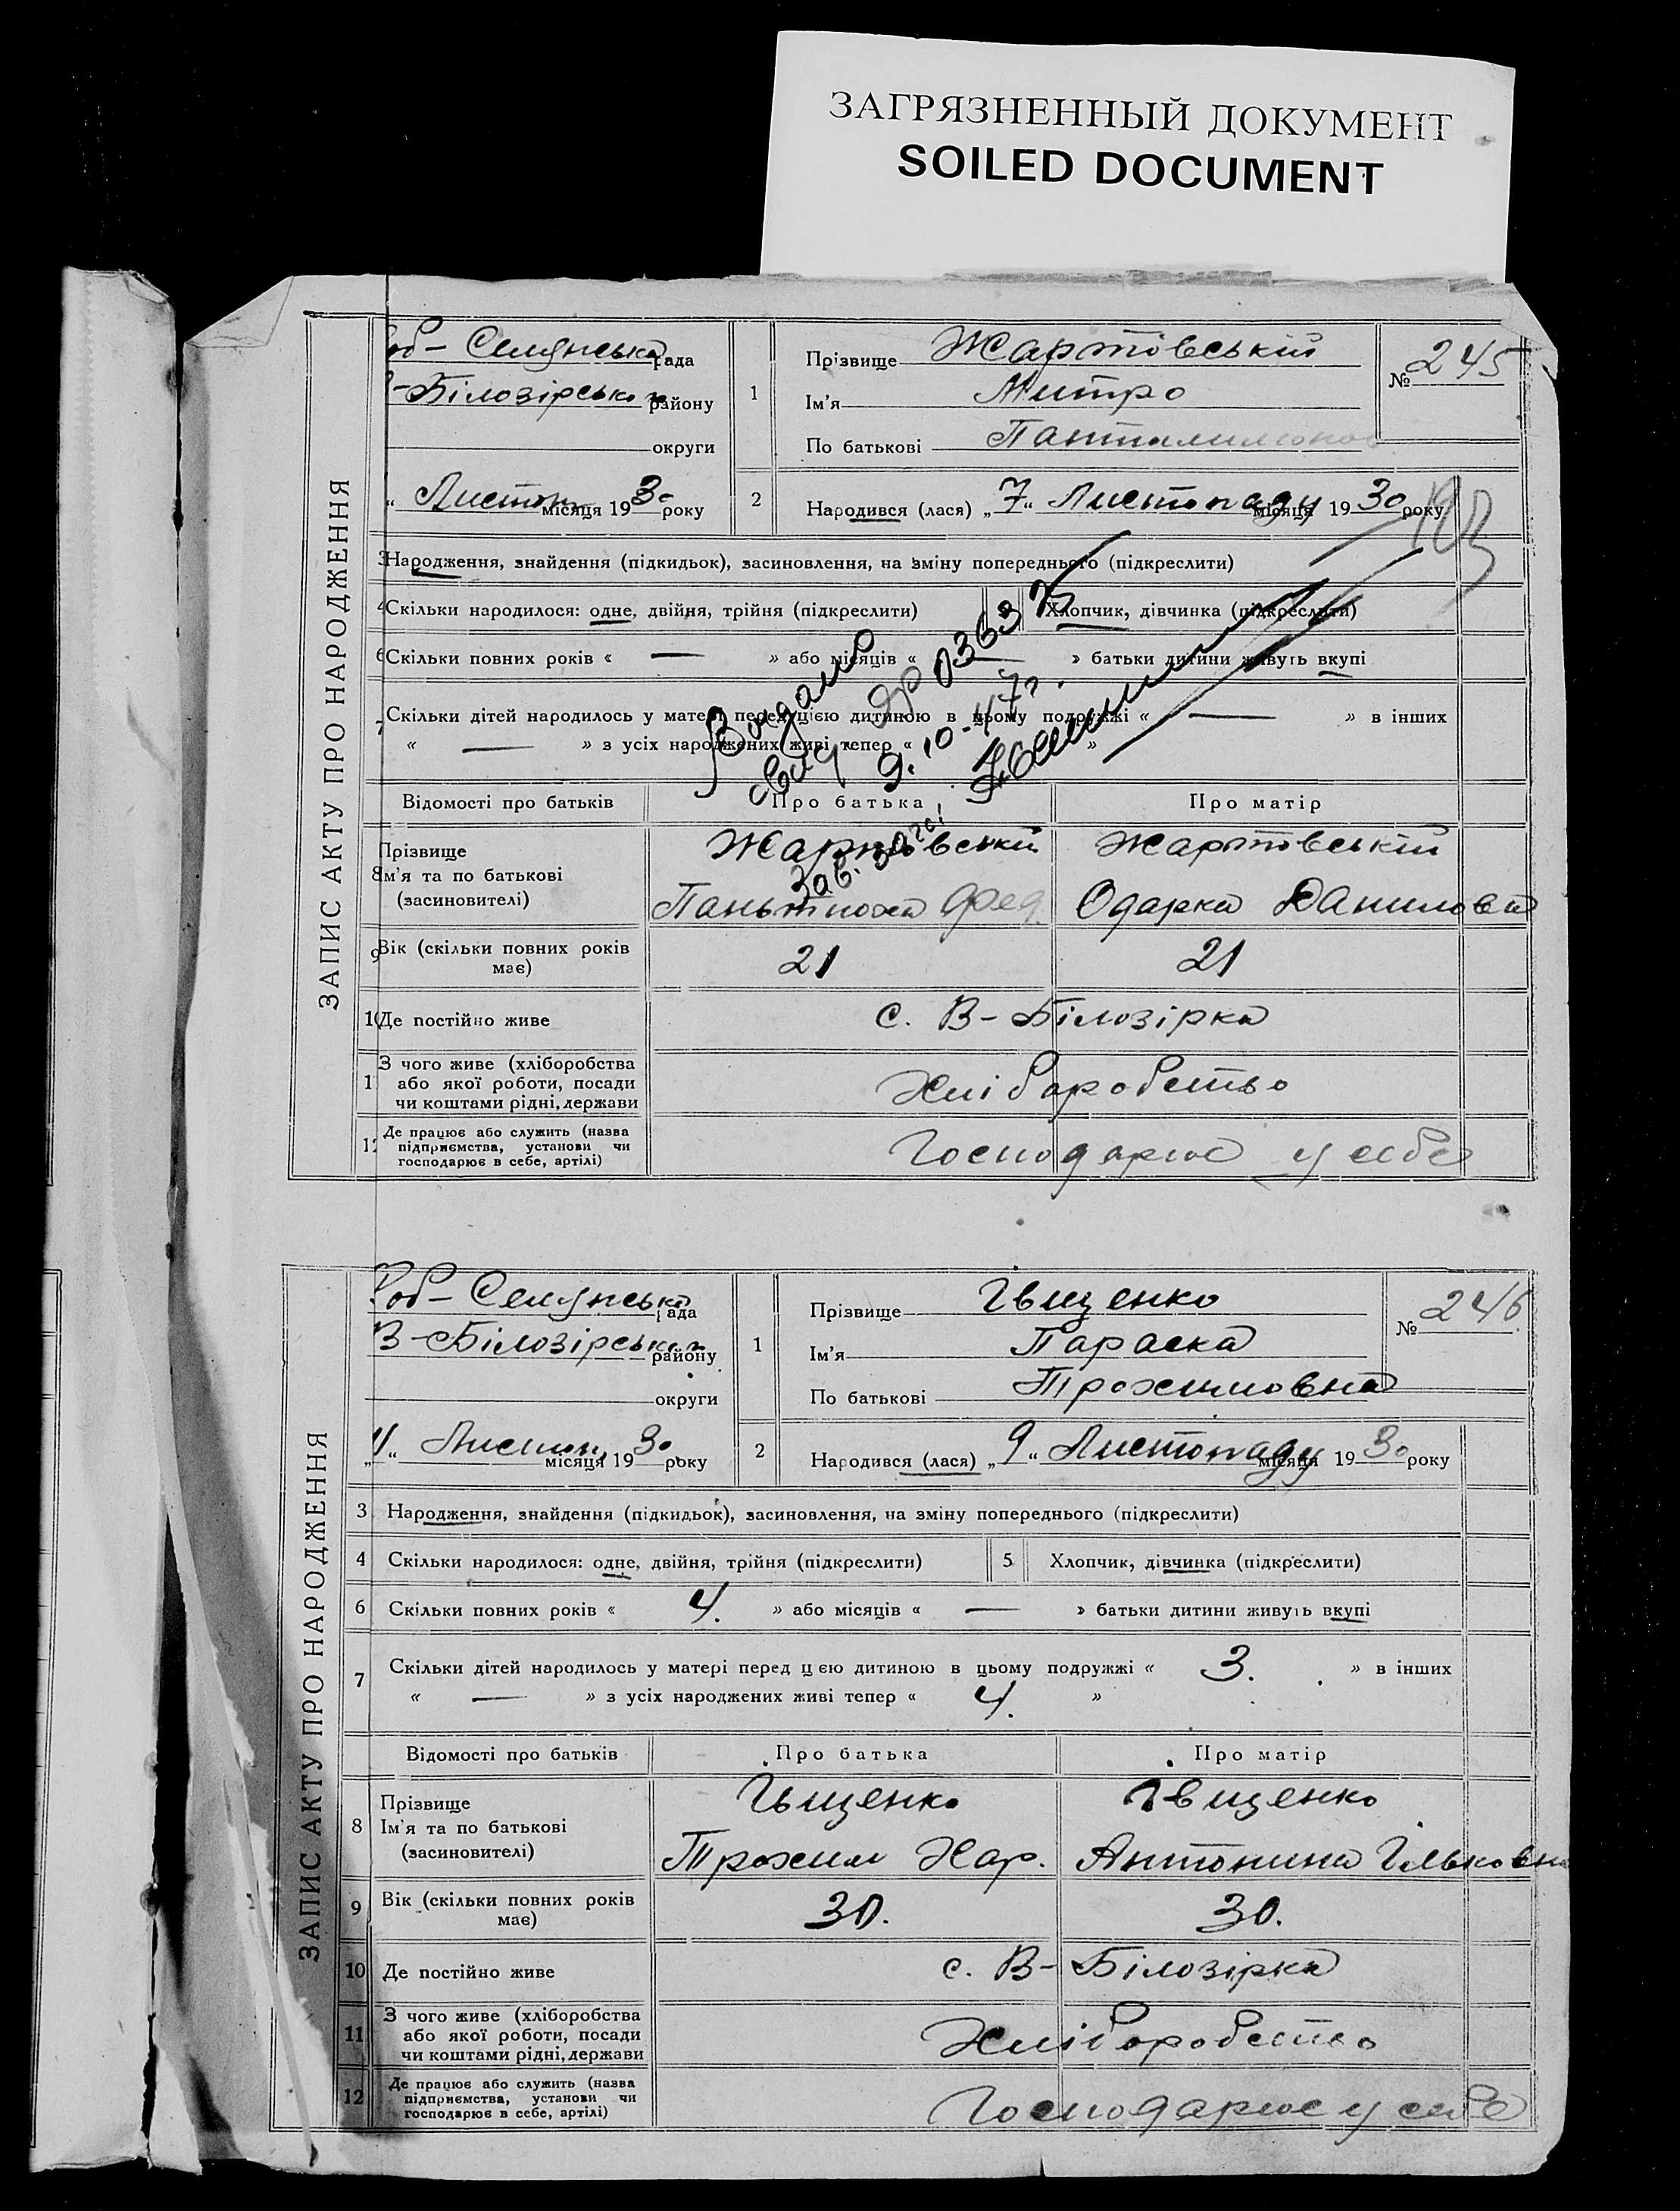 ЗАГРЯЗНЕННЫЙ ДОКУМЕНТ
SOILED DOCUMENT
ЗАПИС АКТУ ПРО НАРОДЖЕННЯ
об- Селянська рада
-Білозірськ району
округи
“ Листоп місяця 1930 року
1
Прізвище Жартовській
Ім'я Митро
По батькові Панталимонов
№ 245
2
Народився (лася) „7“ Листопаду місяця 1930 року
Народження, знайдення (підкидьок), засиновлення, на зміну попереднього (підкреслити)
Скільки народилося: одне, двійня, трійня (підкреслити)
Хлопчик, дівчинка (підкреслити)
Скільки повних років « — » або місяців « — » батьки дитини живуть вкупі
Скільки дітей народилось у матері перед цією дитиною в цьому подружжі « — » в інших
« — » з усіх народжених живі тепер « »
Видано
9.10-47г.
Відомості про батьків
Про батька
Про матір
Прізвище
Ім'я та по батькові
(засиновителі)
Жартовській
Фед.
Жартовській
Одарка Даниловна
9 Вік (скільки повних років має)
21
21
10 Де постійно живе
с. В-Білозірка
З чого живе (хліборобства
або якої роботи, посади
чи коштами рідні, держави
Хліборобство
Де працює або служить (назва
підприємства, установи чи
господарює в себе, артілі)
Господарює у себе
ЗАПИС АКТУ ПРО НАРОДЖЕННЯ
Роб- Селянська рада
В-Білозірськ району
округи
„11“ Листоп, місяця 1930 року
1
Прізвище Івщенко
Ім'я Параска
По батькові Трохимовна
№ 246
2
Народився (лася) „9“ Листопаду місяця 1930 року
3 Народження, знайдення (підкидьок), засиновлення, на зміну попереднього (підкреслити)
4 Скільки народилося: одне, двійня, трійня (підкреслити)
5 Хлопчик, дівчинка (підкреслити)
6 Скільки повних років « 4. » або місяців « — » батьки дитини живуть вкупі
7 Скільки дітей народилось у матері перед цією дитиною в цьому подружжі « 3. » в інших
« — » з усіх народжених живі тепер « 4. »
Відомості про батьків
Про батька
Про матір
8
Прізвище
Ім'я та по батькові
(засиновителі)
Івщенко
Трохим Хар.
Івщенко
Антонина Ільковна
9 Вік (скільки повних років має)
30.
30.
10 Де постійно живе
с. В-Білозірка
11
З чого живе (хліборобства
або якої роботи, посади
чи коштами рідні, держави
Хліборобство
12
Де працює або служить (назва
підприємства, установи чи
господарює в себе, артілі)
Господарює у себе